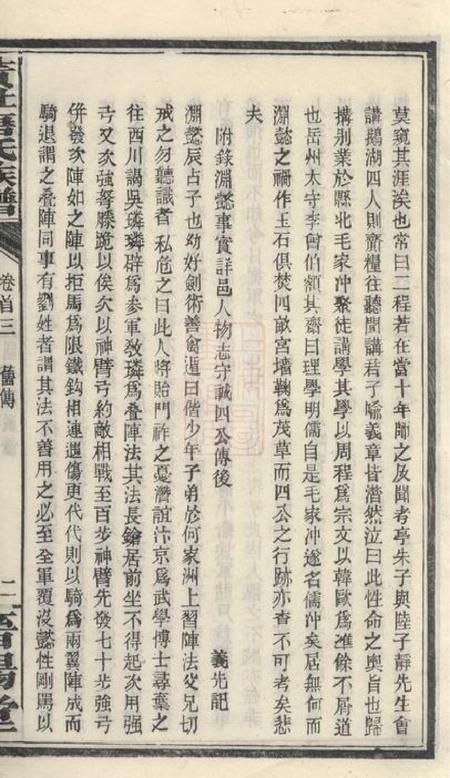 莫窺其涯涘也常曰二程若在當十年師之及聞考亭朱子與陸子靜先生會
講鵝湖四人則齎糧往聽聞講君子喻義章皆潛然泣曰此性命之奧旨也歸
搆别業於縣北毛家冲聚徒講學其學以周程為宗文以韓歐為準餘不屑道
也岳州太守李曾伯額其齋曰理學明儒自是毛家冲遂名儒冲矣居無何而
淵懿之禍作玉石俱焚四畝宮墻鞠為茂草而四公之行跡亦杳不可考矣悲
夫
義先記
附錄淵懿事實詳邑人物志守誠四公傳後
淵懿辰占子也幼好劍術善禽遁日偕少年子弟於何家洲上習陣法父兄切
戒之勿聽識者私危之曰此人將貽門祚之憂潛詣汴京為武學博士尋棄之
往西川謁吳璘璘辟為參軍教璘為叠陣法其法長鎗居前坐不得起次用强
弓又次強弩滕跪以俟次以神臂弓約敵相戰至百步神臂先發七十步強弓
併發次陣如之陣以拒馬為限鐵鈎相連遇傷更代代則以騎為兩翼陣成而
騎退謂之叠陣同事有劉姓者謂其法不善用之必至全軍覆沒懿性剛厲以
黃社唐氏族譜
卷首三
舊傳
二
晉陽堂